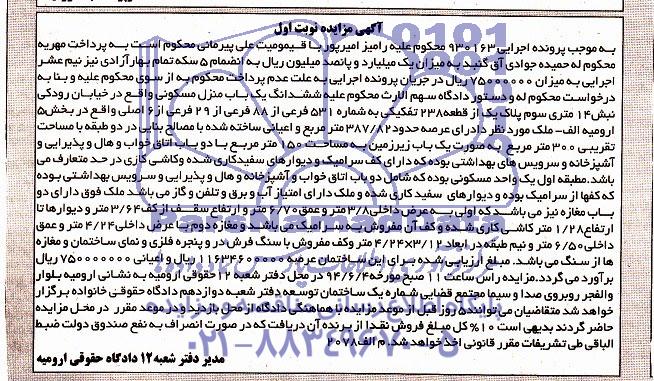 آگهی مزایده نوبت اول
به موجب پرونده اجرایی ۹۳۰۱۶۳ محکوم علیه رامیز امیرپور با قیمومیت علی پیرمانی محکوم است به پرداخت مهریه
محکوم له حمیده جوادی آق گنبد به میزان یک میلیارد و پانصد میلیون ریال به انضمام ۵ سکه تمام بهار آزادی نیز نیم عشر
اجرایی به میزان ۷۵۰۰۰۰۰۰ ریال در جریان پرونده اجرایی به علت عدم پرداخت محکوم به از سوی محکوم علیه و بنا به
درخواست محکوم له و دستور دادگاه سهم الارث محکوم علیه ششدانگ یک باب منزل مسکونی واقع در خیابان رودکی
نبش ۱۴ متری سوم پلاک یک از قطعه ۲۳۸ تفکیکی به شماره ۵۳۱ فرعی از ۸۸ فرعی از ۲۹ فرعی از ۲ اصلی واقع در بخش ۵
ارومیه الف- ملک مورد نظر دارای عرصه حدود ۳۸۷/۸۲ متر مربع و اعیانی ساخته شده با مصالح بنایی در دو طبقه با مساحت
تقریبی ۳۰۰ متر مربع به صورت یک باب زیرزمین به مساحت ۱۵۰ متر مربع با دو باب اتاق خواب و هال و پذیرایی و
آشپزخانه و سرویس های بهداشتی بوده که دارای کف سرامیک و دیوارهای سفیدکاری شده و کاشی کاری در حد متعارف می
باشد. طبقه اول یک واحد مسکونی بوده که شامل دو باب اتاق خواب و آشپزخانه و هال و پذیرایی و سرویس بهداشتی بوده
که کفها از سرامیک بوده و دیوارهای سفید کاری شده و ملک دارای امتیاز آب و برق و تلفن و گاز می باشد ملک فوق دارای دو
باب مغازه نیز می باشد که اولی به عرض داخلی ۳/۸ متر و عمق ۶/۷۰ متر و ارتفاع سقف از کف ۳/۶۴ متر و دیوارها تا
ارتفاع ۱/۲۸ متر کاشی کاری شده و کف آن مفروش به سرامیک می باشد و مغازه دوم با عرض داخلی ۴/۲۴ متر و عمق
داخلی ۶/۵۰ متر و نیم طبقه در ابعاد ۴/۲۴×۳/۱۲ متر وکف مفروش با سنگ فرش، در و پنجره فلزی و نمای ساختمان و مغازه
ها از سنگ می باشد. مبلغ ارزیابی شده برای این ساختمان عرصه ریال و اعیانی ۷۵۰۰۰۰۰۰۰ ریال
برآورد می گردد. مزایده راس ساعت ۱۱ صبح مورخه ۹۴/۶/۴ در محل دفتر شعبه ۱۲ حقوقی ارومیه به نشانی ارومیه بلوار
والفجر روبروی صدا و سیما مجتمع قضایی شماره یک ساختمان توسعه دفتر شعبه دوازدهم دادگاه حقوقی خانواده برگزار
خواهد شد متقاضیان می توانند ۵ روز قبل از موعد مزایده با هماهنگی دادگاه از محل بازدید و در موعد مقرر در محل مزایده
حاضر گردند بدیهی است ۱۰% کل مبلغ فروش نقدا از برنده آن دریافت که در صورت انصراف به نفع صندوق دولت ضبط
الباقی طی تشریفات مقرر قانونی اخذ خواهد شد. م الف ۲۰۷۸
مدیر دفتر شعبه ۱۲ دادگاه حقوقی ارومیه
۰۲۱-۸۸۳۴۹۶۷۰-۵